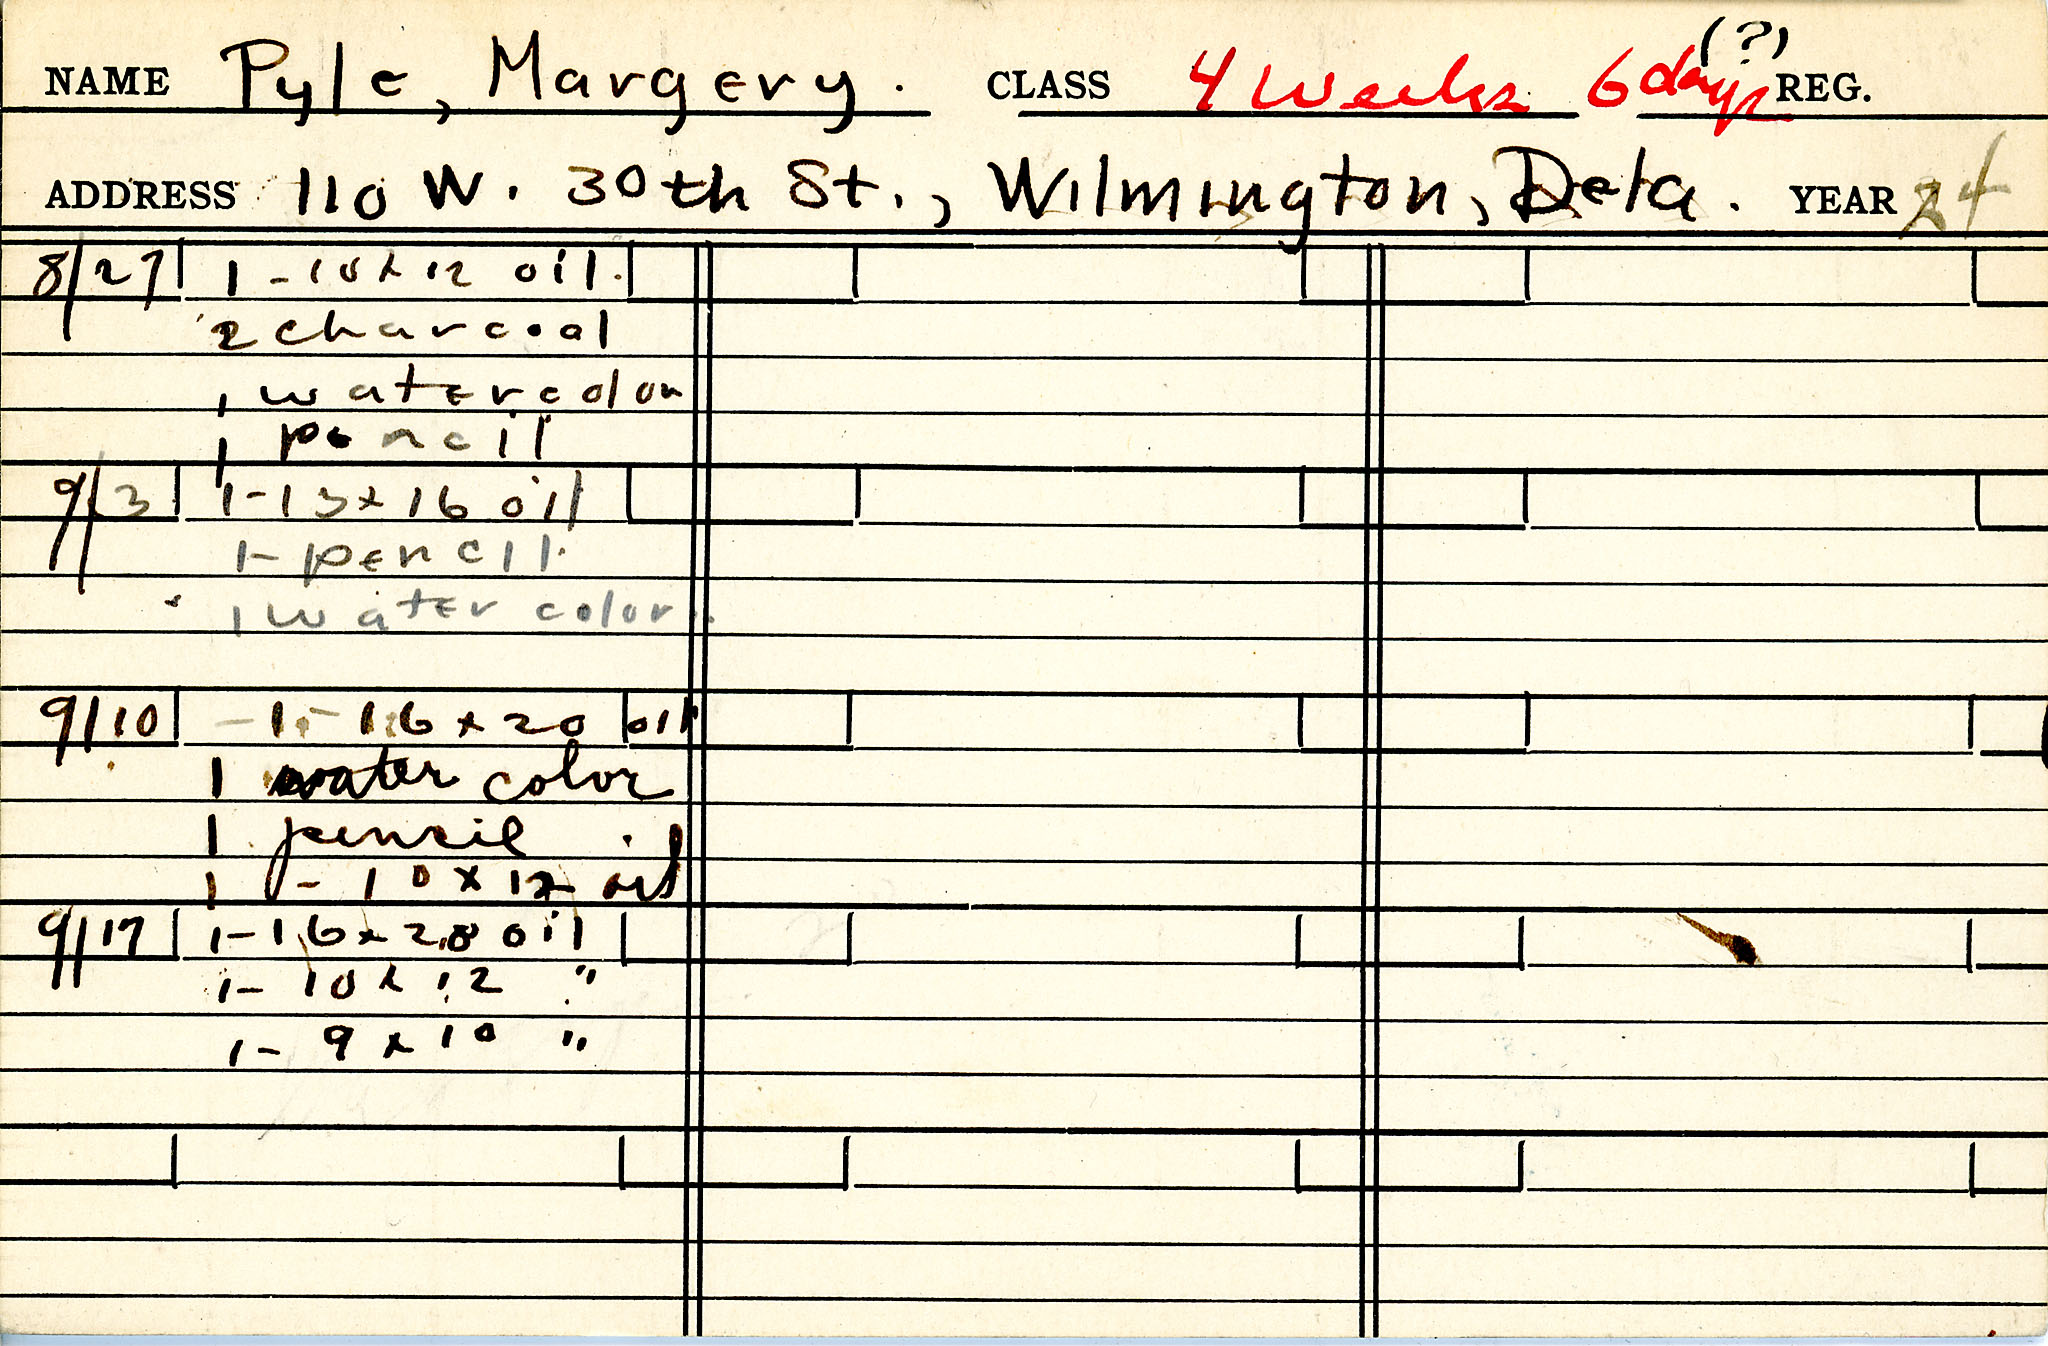 (?)
NAME Pyle, Margery. CLASS 4 weeks 6 days REG.
ADDRESS 110 W. 30th St., Wilmington, Dela. YEAR 24
8/27 1 - 10 x 12 oil.
2 charcoal
1 watercolor
1 pencil
9/3 1 - 13 x 16 oil
1 - pencil.
1 water color.
9/10 - 1 - 16 x 20 oil
1 water color
1 pencil
1 - 10 x 12 oil
9/17 1 - 16 x 20 oil
1 - 10 x 12 "
1 - 9 x 10 "